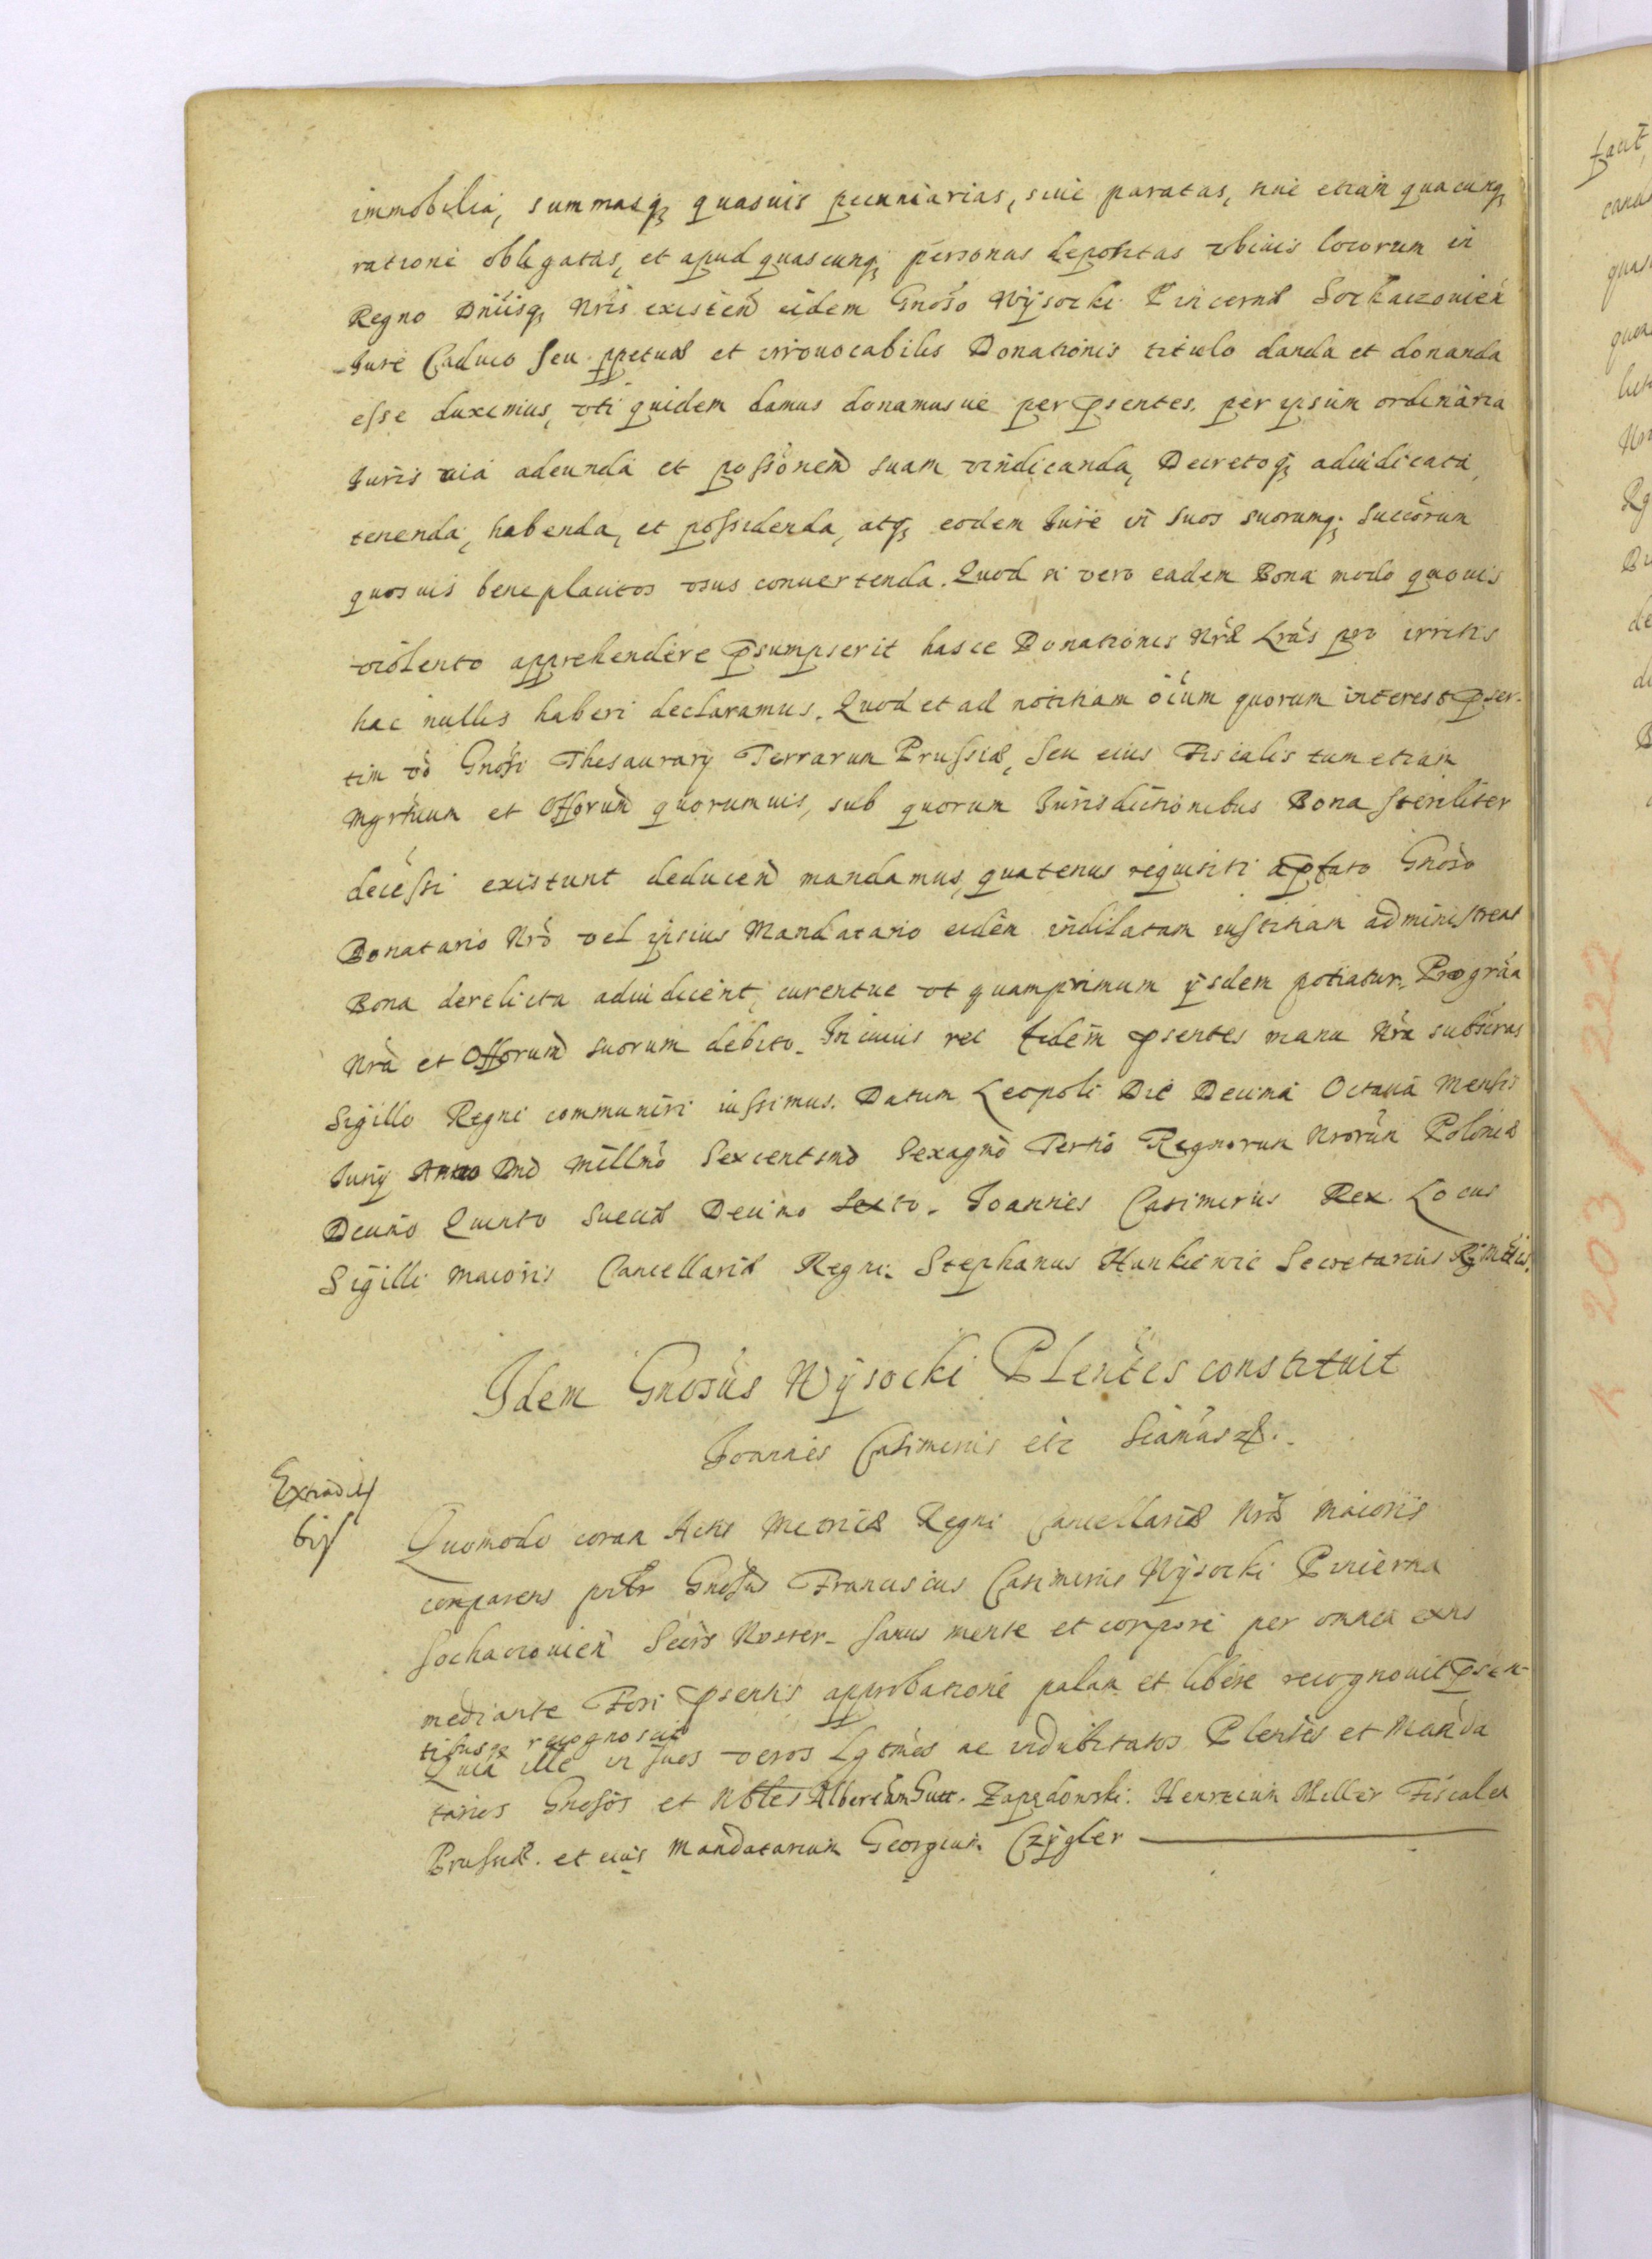 immobilia, summasq, quasuis pecuniarias, siue paratas, siue etiam quacunq,
ratione obligatas, et apud quascunq, personas depositas vbiuis locorum in
Regno Dniisq, Nris existen eidem Gnoso Wÿsocki Pincernæ Sochaczouien
Iure Caduco seu ppetuæ et irreuocabilis Donationis titulo danda et donanda
esse duximus, vti quidem damus donamusue per psentes. per ipsum ordinaria
Iuris via adeunda et possionem suam vindicanda, Decretoq, adiudicata,
tenenda, habenda, et possidenda, atq, eodem Iure in suos suorumq, succorum
quosuis beneplacitos vsus conuertenda. Quod si vero eadem Bona modo quouis
violento apprehendere psumpserit hasce Donationis Nræ Lras pro irritis
hac nullis haberi declaramus. Quod et ad notitiam oium quorum interest pser-
tim vo Gnosi Thesaurarij Terrarum Prussiæ, seu eius Fiscalis tum etiam
Mgrtuum et Offorum quorumuis, sub quorum Iurisdictionibus Bona steriliter
decessi existunt deducen mandamus, quatenus requisiti a pfato Gnoso
Donatario Nro vel ipsius Mandatario eidem indilatam iustitiam administrent
Bona derelicta adiudicent, curentue vt quamprimum ijsdem potiatur. Pro gratia
Nra et Offorum suorum debito. In cuius rei fidem psentes manu Nra subscras
Sigillo Regni communiri iussimus. Datum Leopoli Die Decima Octaua Mensis
Iunÿ Anno Dni Millmo Sexcentmo Sexagmo Tertio Regnorum Nrorum Poloniæ
Decimo Quinto Sueciæ Decimo Sexto. Joannes Casimirus Rex. Locus
Sigilli maioris Cancellariæ Regni. Stephanus Hankiewic Secretarius R Mttis.
Idem Gnosus Wÿsocki Plentes constituit
Joannes Casimirus etc
Extradit
bis
Quomodo coram Actis Metrices Regni Cancellariæ Nræ maioris
comparens pnlr Gnosus Franciscus Casimirus Wÿsocki Pincerna
Sochaczouien Secrs Noster. sanus mente et corpore per omnia exns
mediante Fori psentis approbatione palam et libere recognouit psen-
tibusq recognoscit
Quia ille in suos veros Lgtmes ac indubitatos Plentes et Manda
tarios Gnosos et Nbles Albertum Zapadowski. Henricum Meller Fiscalem
Prussiæ. et eius Mandatarium Georgium Czÿgler